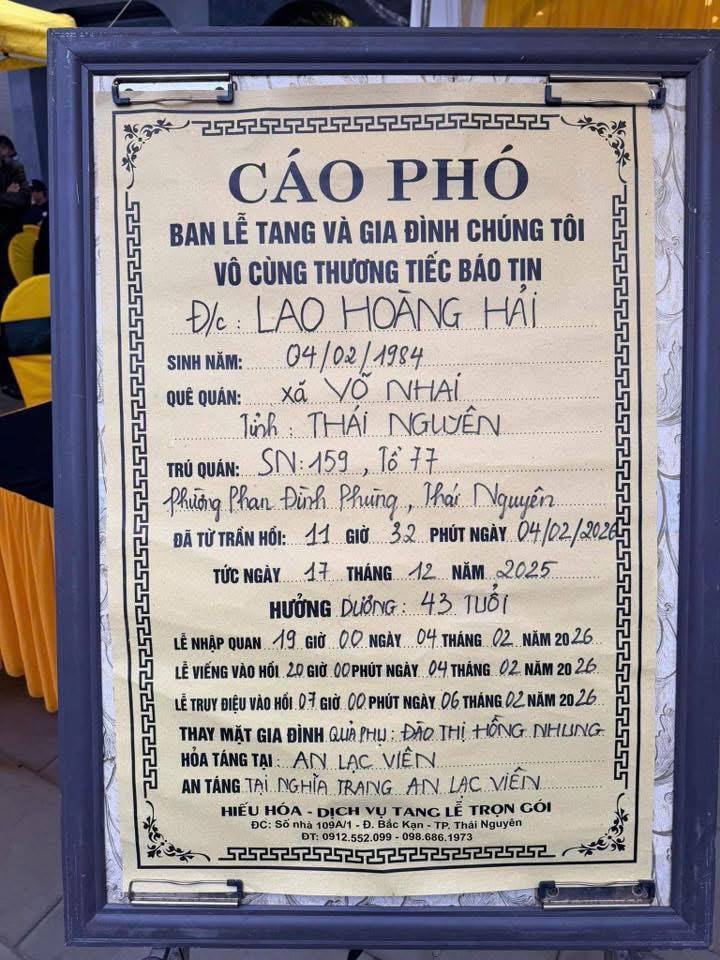 CÁO PHÓ
BAN LỄ TANG VÀ GIA ĐÌNH CHÚNG TÔI
VÔ CÙNG THƯƠNG TIẾC BÁO TIN
Đ/c: LAO HOÀNG HẢI
SINH NĂM: 04/02/1984
QUÊ QUÁN: xã VÕ NHAI
Tỉnh: THÁI NGUYÊN
TRÚ QUÁN: SN: 159, Tổ 77
Phường Phan Đình Phùng, Thái Nguyên
ĐÃ TỪ TRẦN HỒI: 11 GIỜ 32 PHÚT NGÀY 04/02/2026
TỨC NGÀY 17 THÁNG 12 NĂM 2025
HƯỞNG DƯƠNG: 43 TUỔI
LỄ NHẬP QUAN 19 GIỜ 00 NGÀY 04 THÁNG 02 NĂM 2026
LỄ VIẾNG VÀO HỒI 20 GIỜ 00 PHÚT NGÀY 04 THÁNG 02 NĂM 2026
LỄ TRUY ĐIỆU VÀO HỒI 07 GIỜ 00 PHÚT NGÀY 06 THÁNG 02 NĂM 2026
THAY MẶT GIA ĐÌNH QUẢ PHỤ: ĐÀO THỊ HỒNG NHUNG
HỎA TÁNG TẠI: AN LẠC VIÊN
AN TÁNG TẠI NGHĨA TRANG AN LẠC VIÊN
HIẾU HÓA - DỊCH VỤ TANG LỄ TRỌN GÓI
ĐC: Số nhà 109A/1 - Đ. Bắc Kạn - TP. Thái Nguyên
ĐT: 0912.552.099 - 098.686.1973